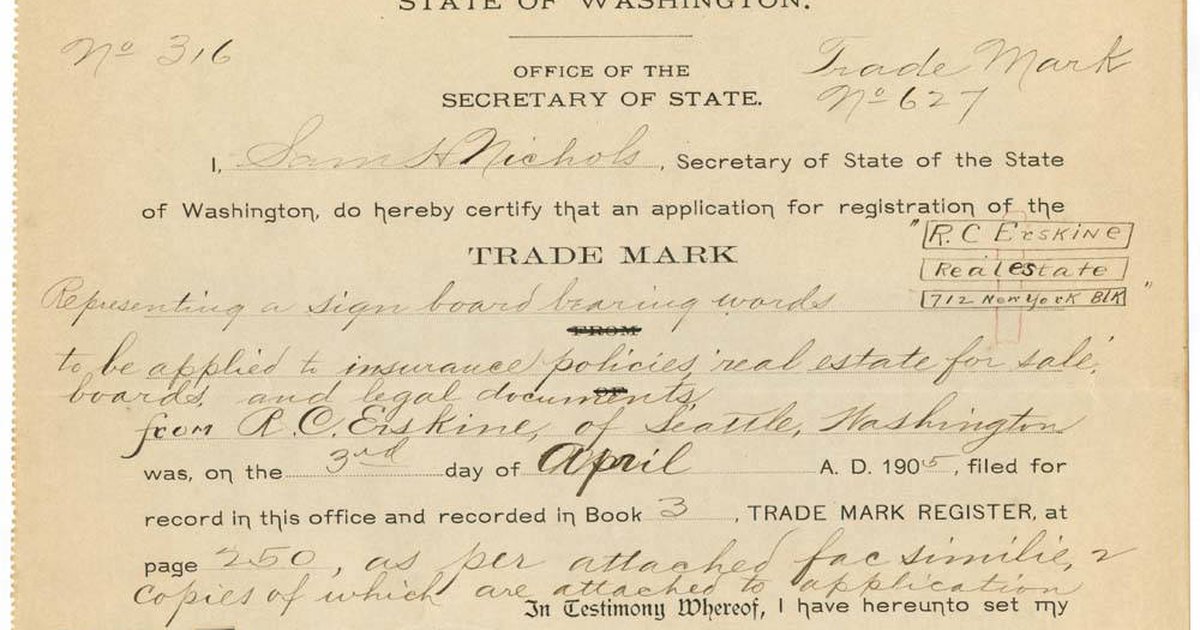 STATE OF WASHINGTON.
No 316
Trade Mark
No 627
OFFICE OF THE
SECRETARY OF STATE.
I, Sam H Nichols, Secretary of State of the State
of Washington, do hereby certify that an application for registration of the
TRADE MARK
"R. C Erskine
Real estate
712 New York Blk"
Representing a sign board bearing words
FROM
to be applied to insurance policies, real estate for sale,
boards, and legal documents,
OF
from R. C. Erskine, of Seattle, Washington
was, on the 3rd day of April A. D. 1905, filed for
record in this office and recorded in Book 3, TRADE MARK REGISTER, at
page 250, as per attached fac similie, 2
copies of which are attached to application
In Testimony Whereof, I have hereunto set my